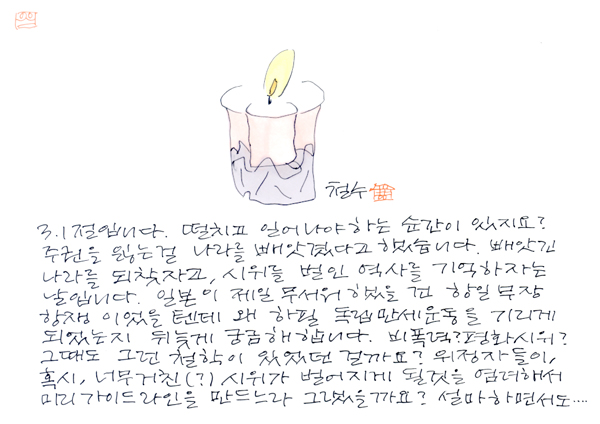 철수
3.1절입니다. 떨치고 일어나야하는 순간이 있지요?
주권을 잃는걸 나라를 빼앗겼다고 했습니다. 빼앗긴
나라를 되찾자고, 시위를 벌인 역사를 기억하자는
날입니다. 일본이 제일 무서워 했을 건 항일 무장
항쟁 이었을 텐데 왜 하필 독립만세운동을 기리게
되었는지 뒤늦게 궁금해합니다. 비폭력?평화시위?
그때도 그런 철학이 있었던 걸까요? 위정자들이,
혹시, 너무거친(?) 시위가 벌어지게 될것을 염려해서
미리 가이드라인을 만드느라 그랬을까요? 설마하면서도....